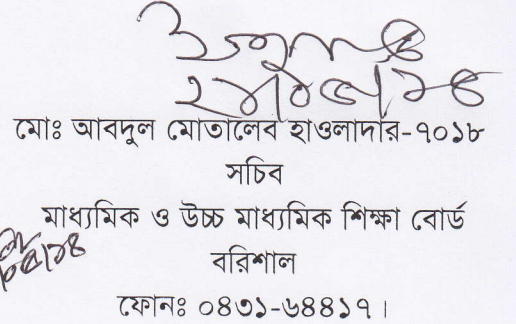 মোঃ আবদুল মোতালেব হাওলাদার-৭০১৮
সচিব
মাধ্যমিক ও উচ্চ মাধ্যমিক শিক্ষা বোর্ড
বরিশাল
ফোনঃ ০৪৩১-৬৪৪১৭।